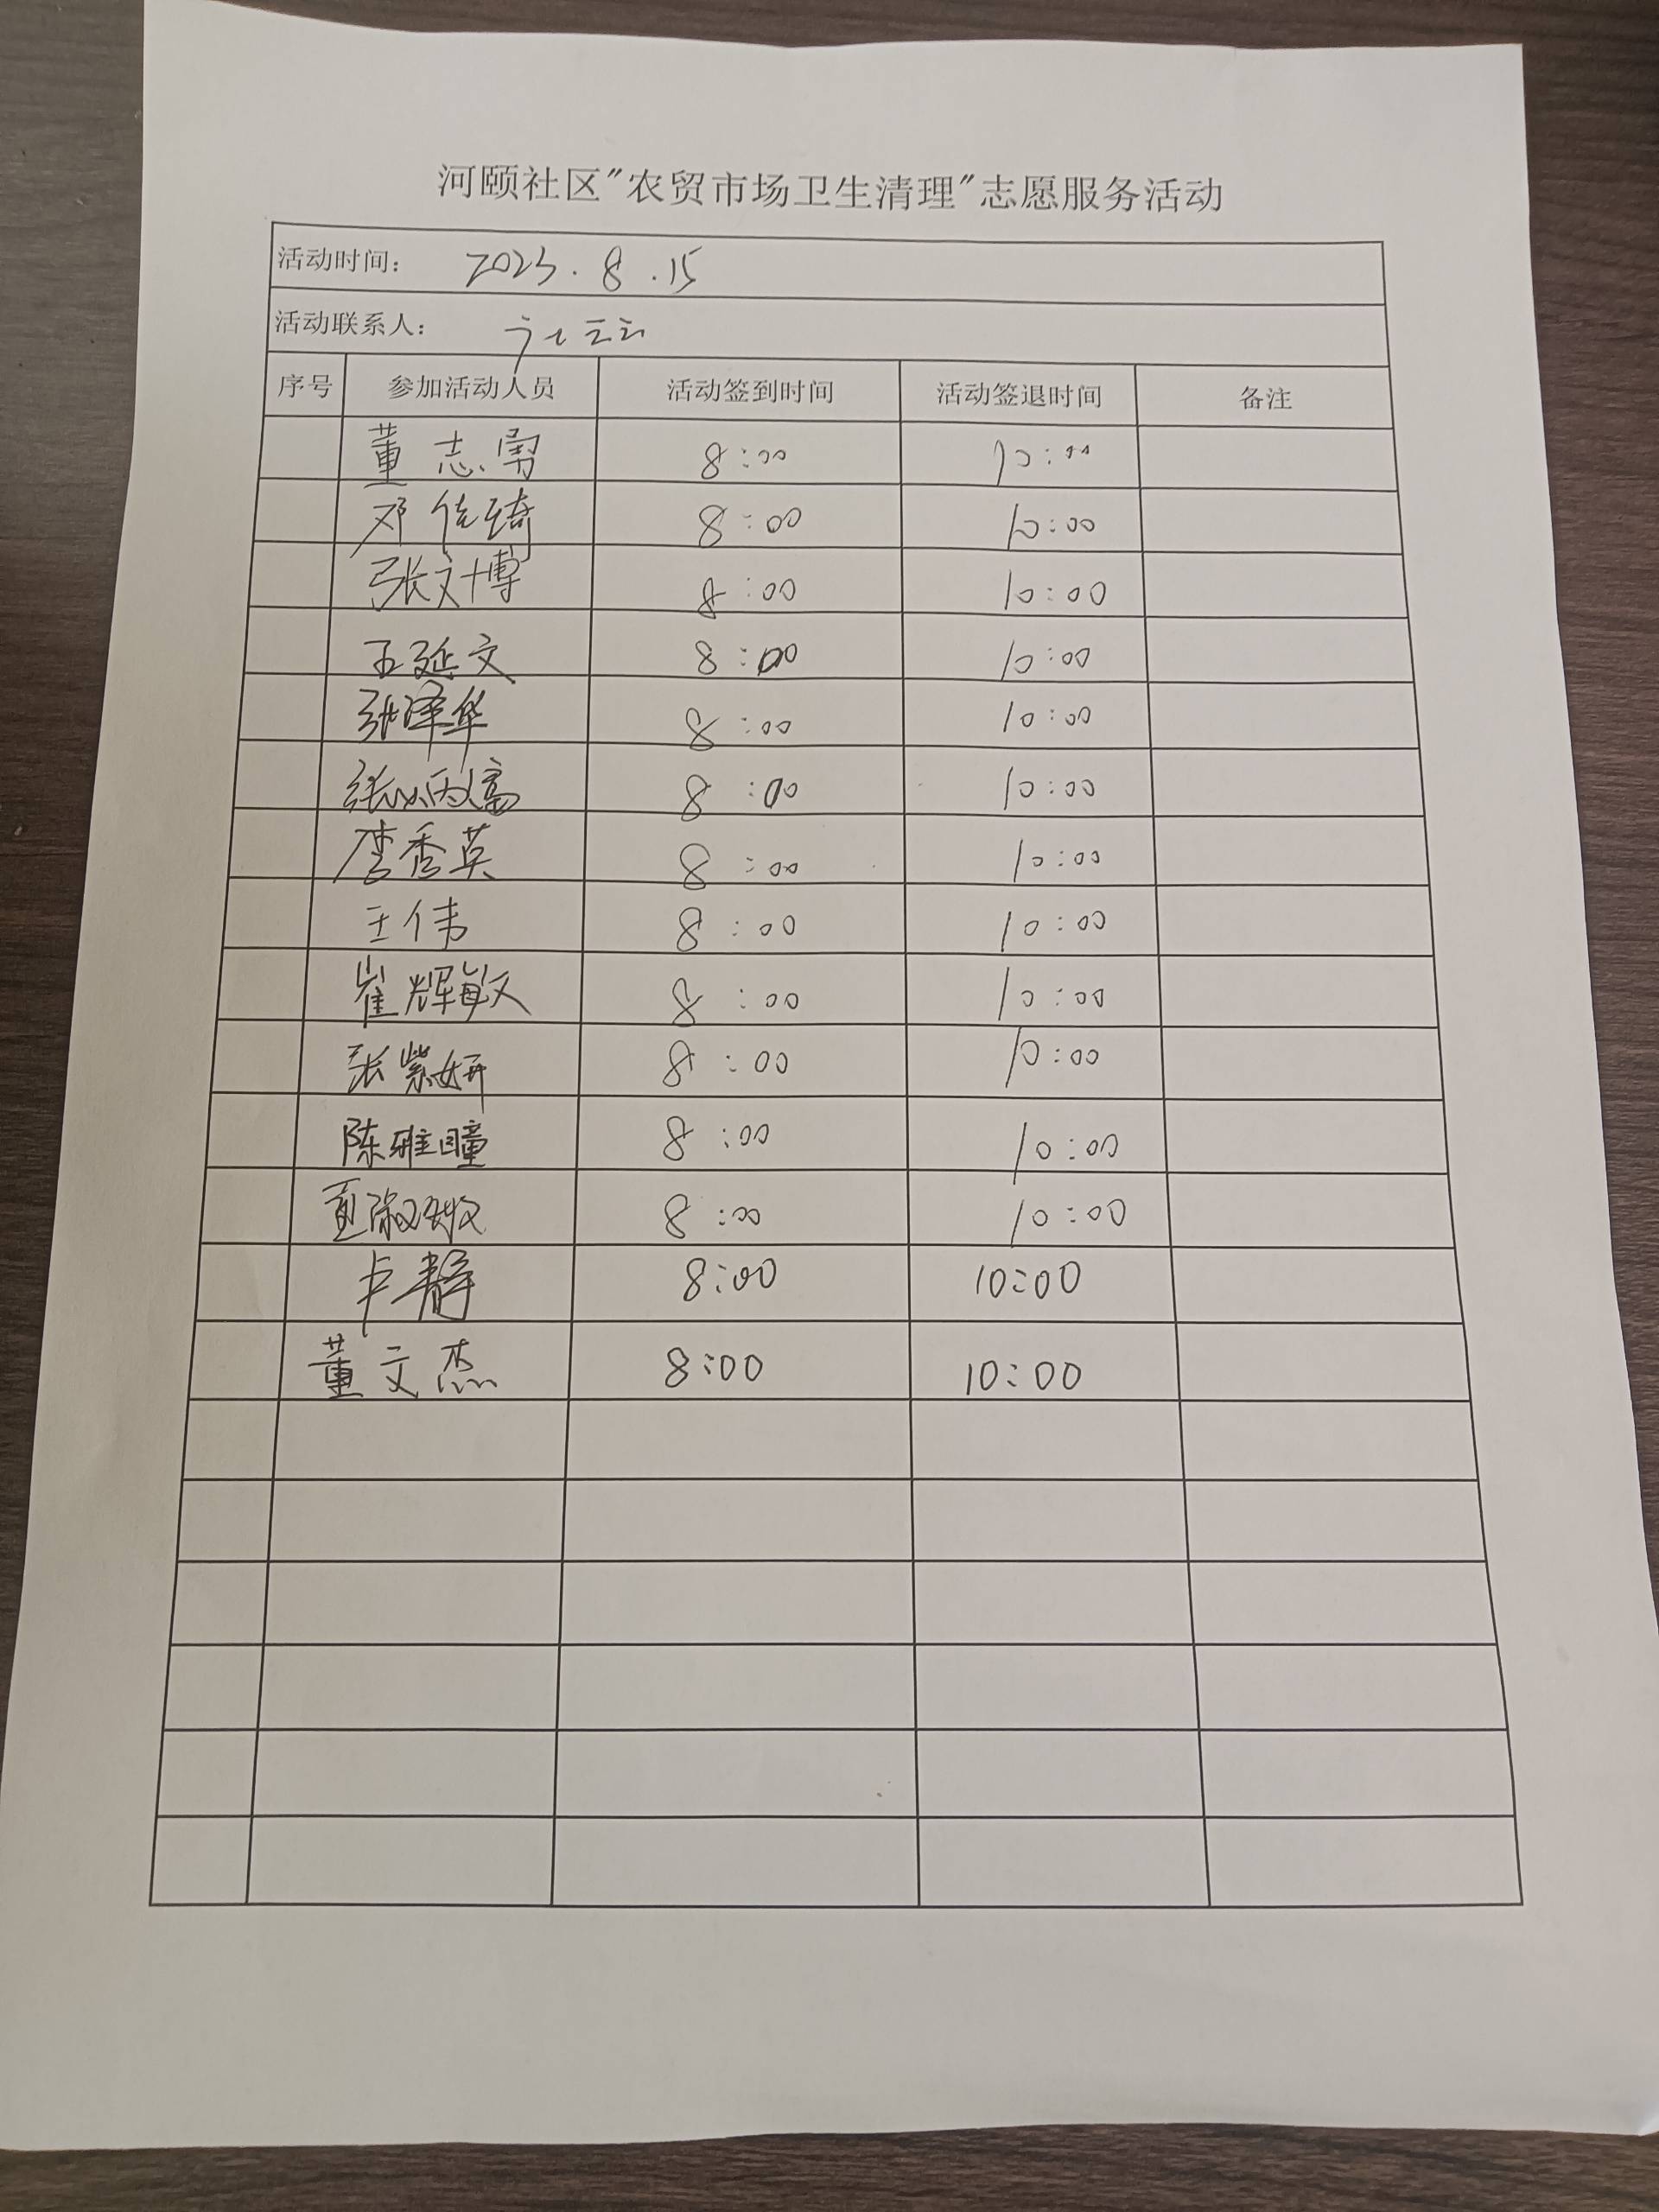 河颐社区"农贸市场卫生清理"志愿服务活动
活动时间： 2023.8.15
活动联系人：
序号 参加活动人员 活动签到时间 活动签退时间 备注
董志勇 8:00 10:00
邓佳琦 8:00 10:00
张文博 8:00 10:00
王延文 8:00 10:00
张泽华 8:00 10:00
张 8:00 10:00
李秀英 8:00 10:00
王伟 8:00 10:00
崔辉敏 8:00 10:00
张紫妍 8:00 10:00
陈雅瞳 8:00 10:00
夏淑敏 8:00 10:00
卢静 8:00 10:00
董文杰 8:00 10:00